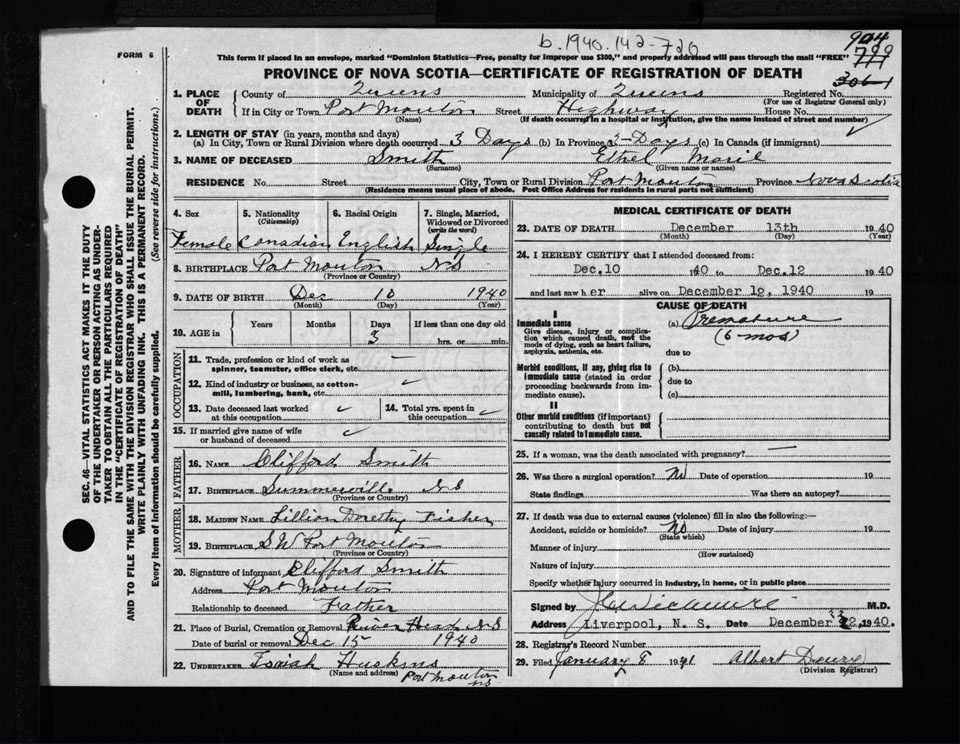 b. 1940. 142-720
904
799
777
3061
FORM 6
This form if placed in an envelope, marked "Dominion Statistics—Free, penalty for improper use $300," and properly addressed will pass through the mail "FREE"
PROVINCE OF NOVA SCOTIA—CERTIFICATE OF REGISTRATION OF DEATH
1. PLACE OF DEATH
County of Queens Municipality of Queens Registered No.
(For use of Registrar General only)
If in City or Town Port Mouton Street Highway House No.
(Name) (If death occurred in a hospital or institution, give the name instead of street and number)
2. LENGTH OF STAY (in years, months and days)
(a) In City, Town or Rural Division where death occurred 3 Days (b) In Province 3-Days (c) In Canada (if immigrant)
3. NAME OF DECEASED Smith Ethel Marie
(Surname) (Given name or names)
RESIDENCE No. Street City, Town or Rural Division Port Mouton Province Nova Scotia
(Residence means usual place of abode. Post Office Address for residents in rural parts not sufficient)
SEC. 46—VITAL STATISTICS ACT MAKES IT THE DUTY
OF THE UNDERTAKER OR PERSON ACTING AS UNDER-
TAKER TO OBTAIN ALL THE PARTICULARS REQUIRED
IN THE "CERTIFICATE OF REGISTRATION OF DEATH"
AND TO FILE THE SAME WITH THE DIVISION REGISTRAR WHO SHALL ISSUE THE BURIAL PERMIT.
WRITE PLAINLY WITH UNFADING INK. THIS IS A PERMANENT RECORD.
Every item of information should be carefully supplied. (See reverse side for instructions.)
4. Sex
Female
5. Nationality
(Citizenship)
Canadian
6. Racial Origin
English
7. Single, Married, Widowed or Divorced
(write the word)
Single
8. BIRTHPLACE Port Mouton NS
(Province or Country)
9. DATE OF BIRTH Dec 10 1940
(Month) (Day) (Year)
10. AGE in
Years Months Days If less than one day old
3 hrs. or min.
OCCUPATION
11. Trade, profession or kind of work as
spinner, teamster, office clerk, etc. —
12. Kind of industry or business, as cotton-
mill, lumbering, bank, etc.
13. Date deceased last worked
at this occupation
14. Total yrs. spent in
this occupation
15. If married give name of wife
or husband of deceased
FATHER
16. NAME Clifford Smith
17. BIRTHPLACE Summerville NS
(Province or Country)
MOTHER
18. MAIDEN NAME Lillian Dorethy Fisher
19. BIRTHPLACE S W Port Mouton
(Province or Country)
20. Signature of informant Clifford Smith
Address Port Mouton
Relationship to deceased Father
21. Place of Burial, Cremation or Removal River Head NS
Date of burial or removal Dec 15 1940
22. UNDERTAKER Isaiah Huskins
(Name and address) Port Mouton
NS
MEDICAL CERTIFICATE OF DEATH
23. DATE OF DEATH December 13th 1940
(Month) (Day) (Year)
24. I HEREBY CERTIFY that I attended deceased from:
Dec. 10 1940 to Dec. 12 1940
and last saw her alive on December 12, 1940
CAUSE OF DEATH
I
Immediate cause
Give disease, injury or complica-
tion which caused death, not the
mode of dying, such as heart failure,
asphyxia, asthenia, etc.
(a) Premature
(6 mos)
due to
Morbid conditions, if any, giving rise to
immediate cause (stated in order
proceeding backwards from im-
mediate cause).
(b)
due to
(c)
II
Other morbid conditions (if important)
contributing to death but not
causally related to immediate cause.
25. If a woman, was the death associated with pregnancy? —
26. Was there a surgical operation? No Date of operation 19
State findings Was there an autopsy?
27. If death was due to external causes (violence) fill in also the following:—
Accident, suicide or homicide? No Date of injury 19
(State which)
Manner of injury
(How sustained)
Nature of injury
Specify whether injury occurred in industry, in home, or in public place
Signed by M.D.
Address Liverpool, N. S. Date December 1940.
28. Registrar's Record Number
29. Filed January 8 1941 Albert
(Division Registrar)